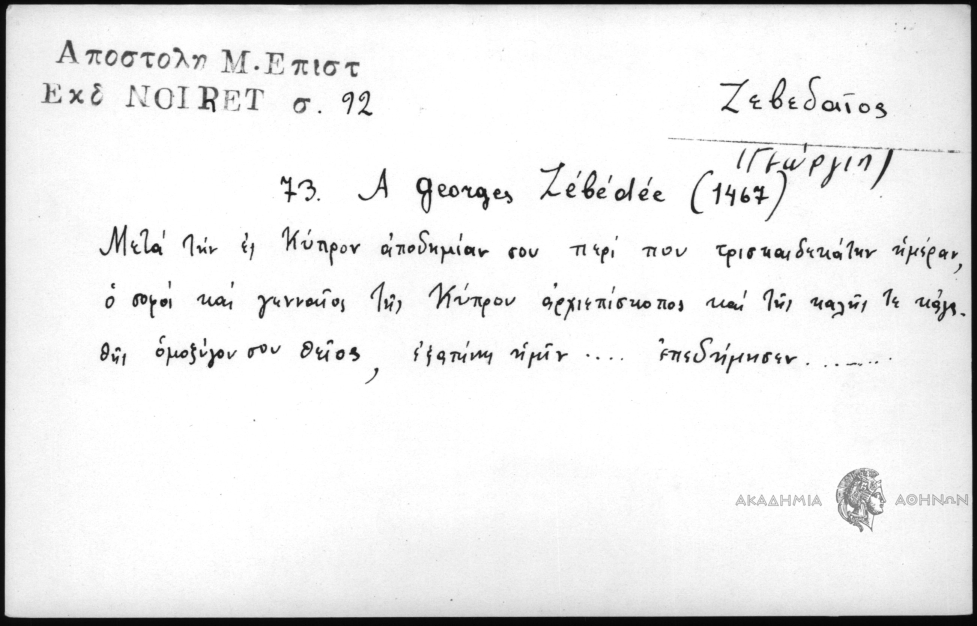 Αποστολη Μ. Επιστ
Εκδ NOIRET σ. 92
Ζεβεδαῖος
(Γεώργιος)
73. A Georges Zébédée (1467)
Μετά τήν ἐς Κύπρον ἀποδημίαν σου περί που τρισκαιδεκάτην ἡμέραν,
ὁ σοφός καί γενναῖος τῆς Κύπρου ἀρχιεπίσκοπος καί τῆς καλῆς τε κἀγα-
θῆς ὁμοζύγου σου θεῖος, ἐξαπίνης ἡμῖν .... ἐπεδήμησεν .......
ΑΚΑΔΗΜΙΑ ΑΘΗΝΩΝ